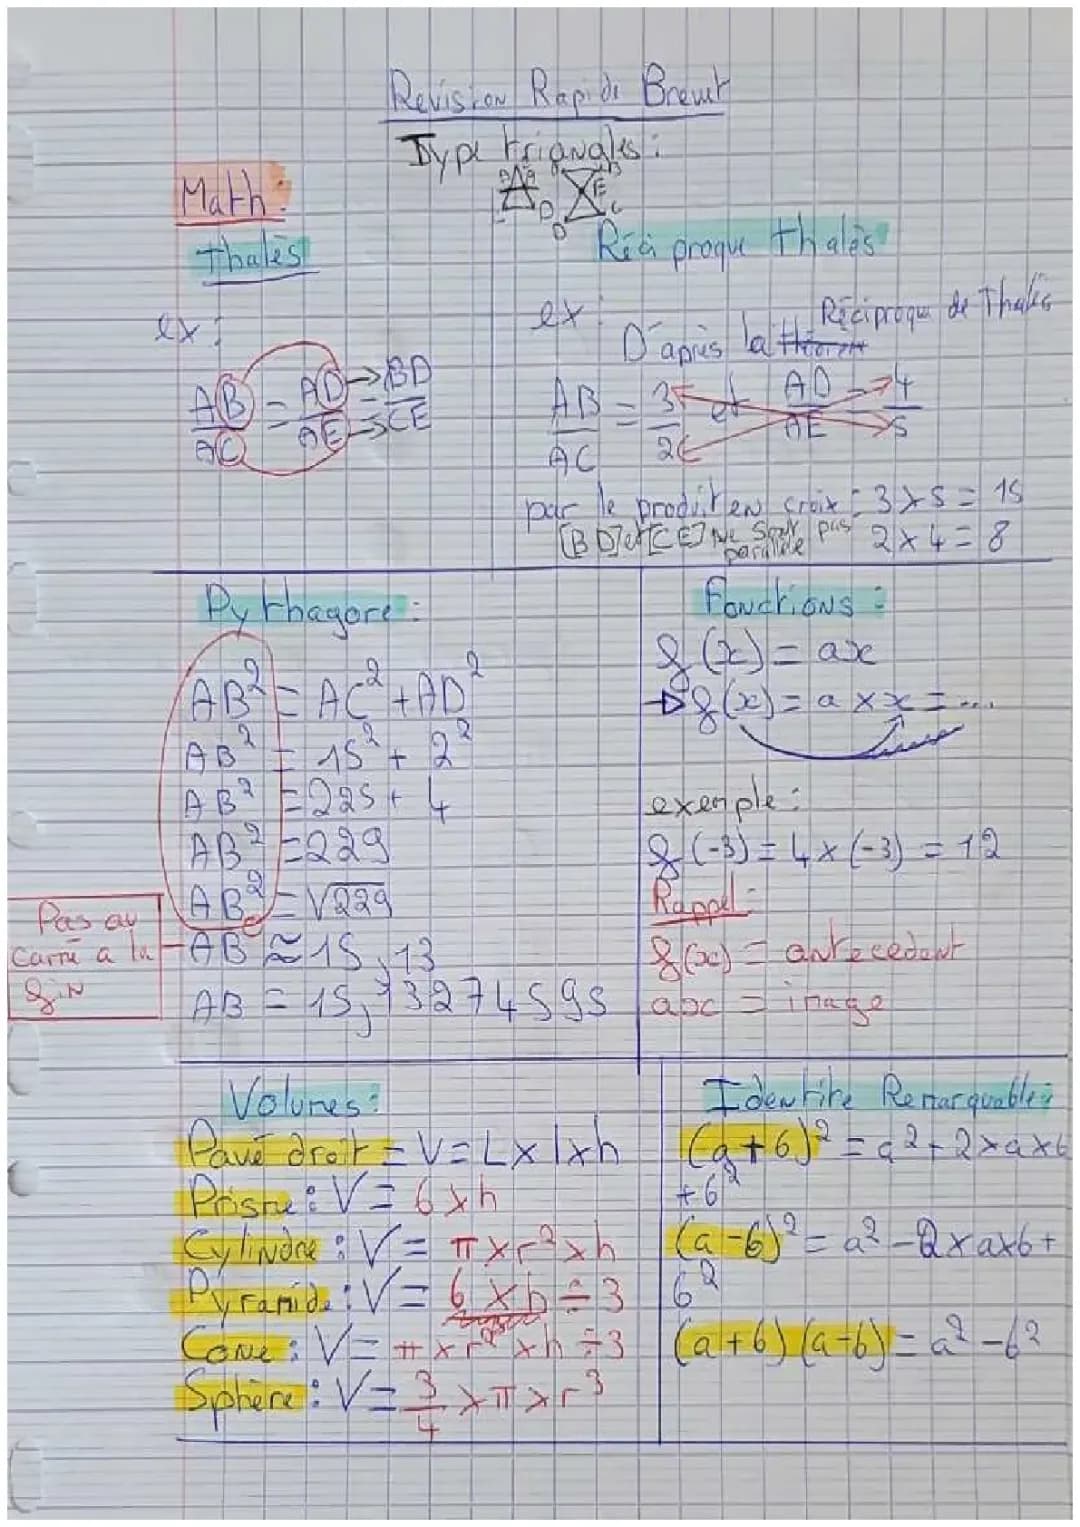 Revision Rapide Brevet
Type triangles :
Math :
Thalès
ex :
AB/AC = AD/AE = BD/CE
Réciproque thalès
ex :
Réciproque de Thalès
D'après la
AB/AC = 3/2 et AD/AE = 4/5
par le produit en croix : 3 x 5 = 15
[BD] et [CE] Ne sont pas 2 x 4 = 8
parallèle
Pythagore :
AB² = AC² + AD²
AB² = 15² + 2²
AB² = 225 + 4
AB² = 229
AB² = √229
AB ≈ 15,13
AB = 15,13274595
Pas au
Carré a la
fiN
Fonctions :
f(x) = ax
→ f(x) = a x x = ...
exemple :
f(-3) = 4 x (-3) = 12
Rappel :
f(x) = antecedant
abc = image
Volumes :
Pavé droit = V = L x l x h
Prisme : V = 6 x h
Cylindre : V = π x r² x h
Pyramide : V = 6 x h ÷ 3
Cone : V = π x r² x h ÷ 3
Sphère : V = 3/4 x π x r³
Identite Remarquable :
(a+6)² = a² + 2 x a x 6
+ 6²
(a-6)² = a² - 2 x a x 6 +
6²
(a+6)(a-6) = a² - 6²